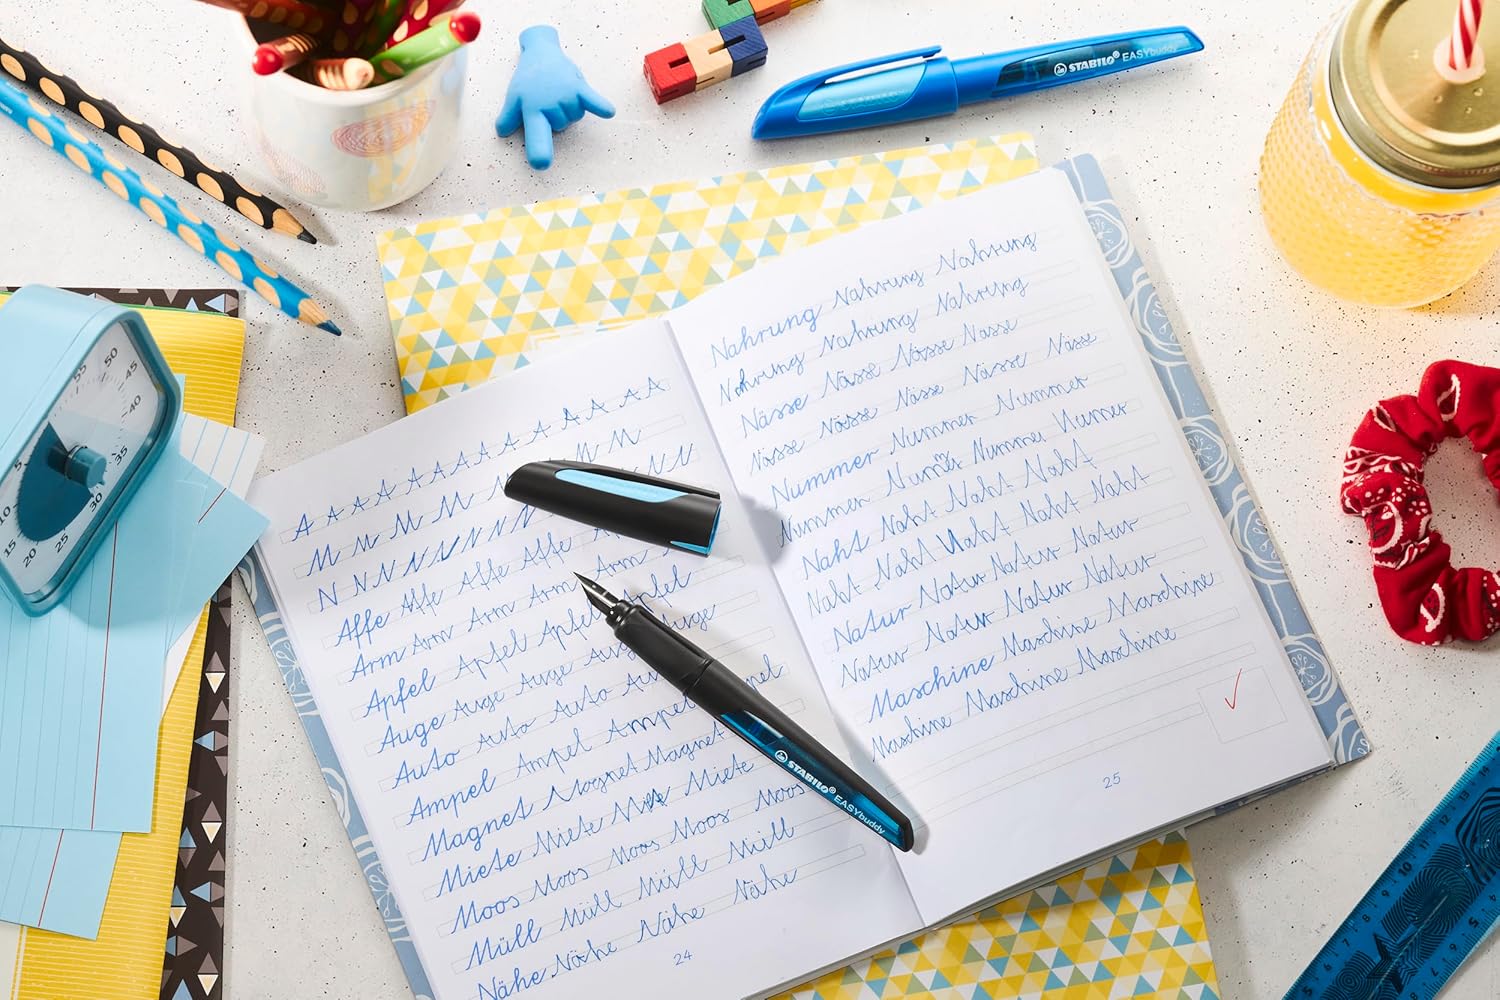 STABILO® EASYbuddy
A A A A A A A A A A A A A A
M M M M M M M
N N N N N N N N N
Affe Affe Affe Affe
Arm Arm Arm Arm
Apfel Apfel Apfel
Auge Auge Auge Auge
Auto Auto Auto
Ampel Ampel Ampel
Magnet Magnet Magnet
Miete Miete Miete Miete
Moos Moos Moos Moos
Müll Müll Müll Müll
Nähe Nähe Nähe Nähe
24
Nahrung Nahrung Nahrung
Nahrung Nahrung Nahrung
Nässe Nässe Nässe Nässe
Nässe Nässe Nässe Nässe Nässe
Nummer Nummer Nummer
Nummer Nummer Nummer Nummer
Naht Naht Naht Naht
Naht Naht Naht Naht Naht
Natur Natur Natur Natur
Natur Natur Natur Natur
Maschine Maschine Maschine
Maschine Maschine Maschine
25
STABILO® EASYbuddy
50
55
45
40
35
30
25
20
15
10
5